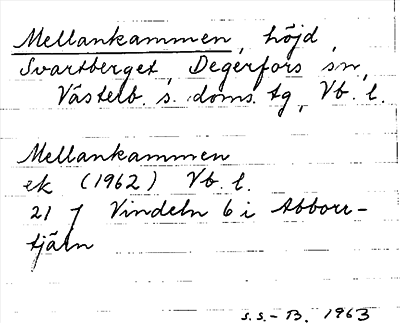 Mellankammen, höjd,
Svartberget, Degerfors sn,
Västerb. s. doms. tg, Vb. l.
Mellankammen
ek (1962) Vb. l.
21 J Vindeln 6 i Abborr-
tjärn
S.S.-B. 1963